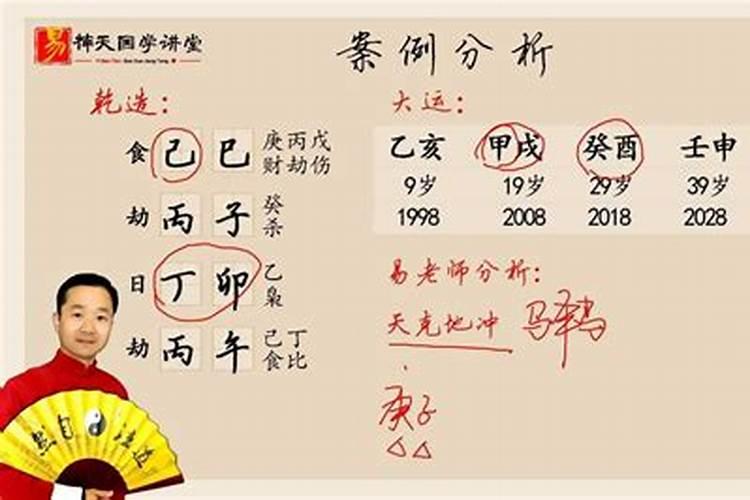 易 神天国学讲堂
案例分析
乾造：
食 己 巳 庚丙戊
财劫伤
劫 丙 子 癸
杀
日 丁 卯 乙
枭
劫 丙 午 己丁
食比
大运：
乙亥 甲戌 癸酉 壬申
9岁 19岁 29岁 39岁
1998 2008 2018 2028
易老师分析：
天克地冲
庚子
自 法